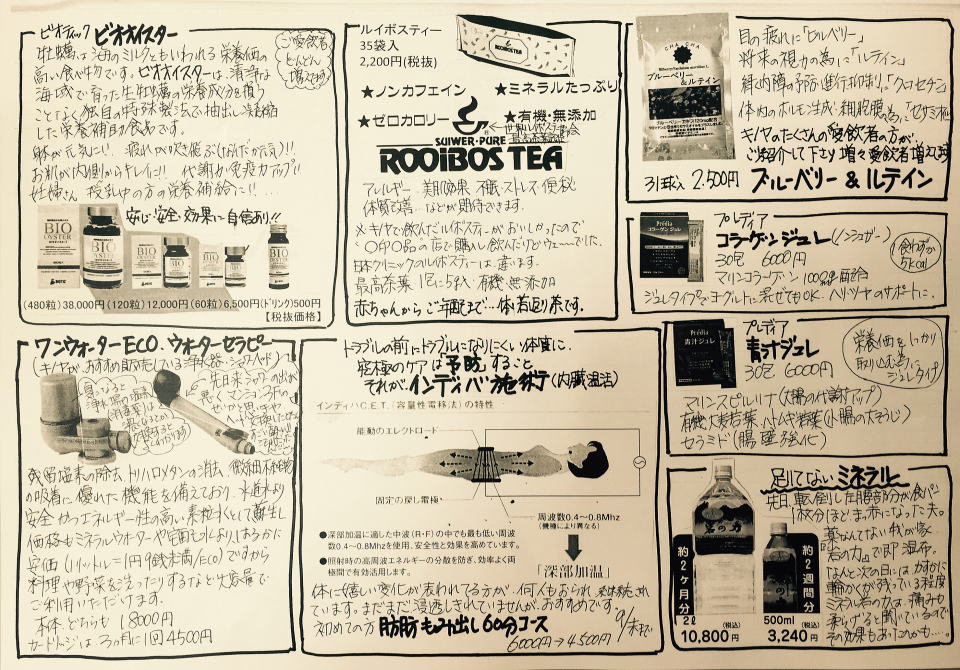 ビオティック ビオオイスター
牡蠣は海のミルクともいわれる栄養価の
高い食べ物です。ビオオイスターは、清浄な
海域で育った生牡蠣の栄養成分を損う
ことなく独自の特殊製法で抽出し、濃縮
した栄養補助食品です。
身体が元気に!! 疲れが吹き飛ぶ(なれだか元気)!!
お肌が内側からキレイに!! 代謝力・免疫力アップ!!
妊婦さん 授乳中の方の栄養補給に!!…
ご愛飲者
どんどん
増えてます
安心・安全・効果に自信あり!!
BIO
OYSTER
(480粒)38,000円(120粒)12,000円(60粒)6,500円(ドリンク)500円
【税抜価格】
ルイボスティー
35袋入
2,200円(税抜)
ROOIBOS TEA
★ノンカフェイン ★ミネラルたっぷり
★ゼロカロリー ★有機・無添加
SUIWER・PURE
ROOIBOS TEA
アレルギー 美肌効果 不眠・ストレス・便秘
体質改善 などが期待できます。
※キヤで飲んだルイボスティーがおいしかったので
〇〇〇品の店で購入し飲んだけどウェ〜〜でした。
日本クリニックのルイボスティーは違います。
最高茶葉 1袋に5g入 有機・無添加
赤ちゃんからご年配まで…体若返り茶です。
ブルーベリー
&ルテイン
目の疲れに「ビルベリー」
将来の視力の為に「ルテイン」
緑内障の予防・進行抑制。「クロセチン」
体内のホルモン生成・細胞膜に「セサミン」
キヤのたくさんの愛飲者の方が、
ご紹介して下さり 増々愛飲者増えてます
31球入 2.500円 ブルーベリー&ルテイン
Prédia
コラーゲン ジュレ
プレディア
コラーゲンジュレ(ノンシュガー)
30包 6000円
マリンコラーゲン 1000mg配合
ジュレタイプでヨーグルトに混ぜてもOK ハリ・ツヤのサポートに。
1包わずか
5kcal
Prédia
青汁ジュレ
プレディア
青汁ジュレ
30包 6000円
栄養価をしっかり
取り込む為に
ジュレタイプ
マリンスピルリナ(大腸の代謝アップ)
有機大麦若葉、ハトムギ若葉(小腸の大そうじ)
セラミド(腸壁強化)
ワンウォーターECO. ウォーターセラピー
(キヤが、おすすめ販売している浄水器・シャワーヘッド)
残留塩素の除去、トリハロメタンの消去、微細な不純物
の吸着に優れた機能を備えており、水道水より
安全かつエネルギー性の高い素粒水として蘇生し
価格もミネラルウォーターや宅配水よりはるかに
安価(1リットル=1円9銭未満/ECO)ですから
料理や野菜を洗ったりするなど大容量で
ご利用いただけます。
本体 どちらも 18000円
カートリッジは3つ月に1回 4500円
トラブルの前にトラブルになりにくい体質に。
究極のケアは予防すること
それがインディバ施術(内臓温活)
インディバC.E.T.(容量性電移法)の特性
能動のエレクトロード
固定の戻し電極
周波数0.4〜0.8Mhz
(機種により異なる)
●深部加温に適した中波(R・F)の中でも最も低い周波
数0.4〜0.8Mhzを使用、安全性と効果を高めています。
●照射時の高周波エネルギーの分散を防ぎ、効率よく両
極間で有効活用します。
「深部加温」
体に嬉しい変化が表われてる方が、何人もおられ、来店続けられ
ています。まだまだ浸透しきれていませんが、おすすめです。
初めての方 脂肪もみ出し60分コース
6000円→4500円 9/末まで
足りてない ミネラル
先日、転倒し左腰部分が食パン
1枚分ほどまっ赤になった夫。
薬なんてない我が家
「岩の力」で即湿布。
なんと次の日にはかすかに
輪かくが残っている程度
ミネラル岩の力は、痛みも
柔らげると聞いているので
その効果もあったのかも…。
岩の力
約2ヶ月分
約2週間分
2ℓ (税込)
10,800円
500ml (税込)
3,240円